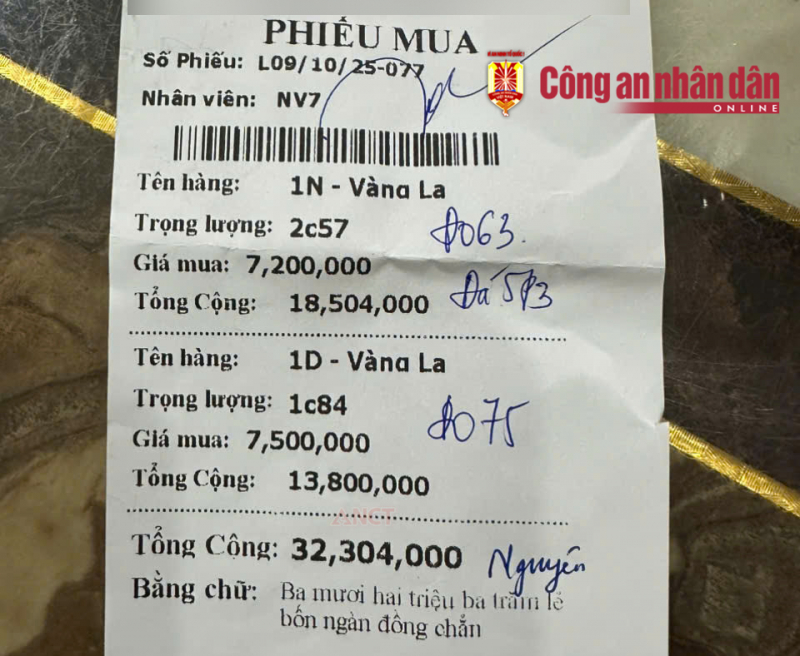 PHIẾU MUA
Số Phiếu: L09/10/25-077
Công an nhân dân
ONLINE
Nhân viên: NV7
Tên hàng: 1N - Vàng La
Trọng lượng: 2c57
Đo63.
Giá mua: 7,200,000
Tổng Cộng: 18,504,000
Đá 5P3
Tên hàng: 1D - Vàng La
Trọng lượng: 1c84
Đo75
Giá mua: 7,500,000
Tổng Cộng: 13,800,000
ANCT
Tổng Cộng: 32,304,000
Nguyên
Bằng chữ: Ba mươi hai triệu ba trăm lẻ
bốn ngàn đồng chẵn